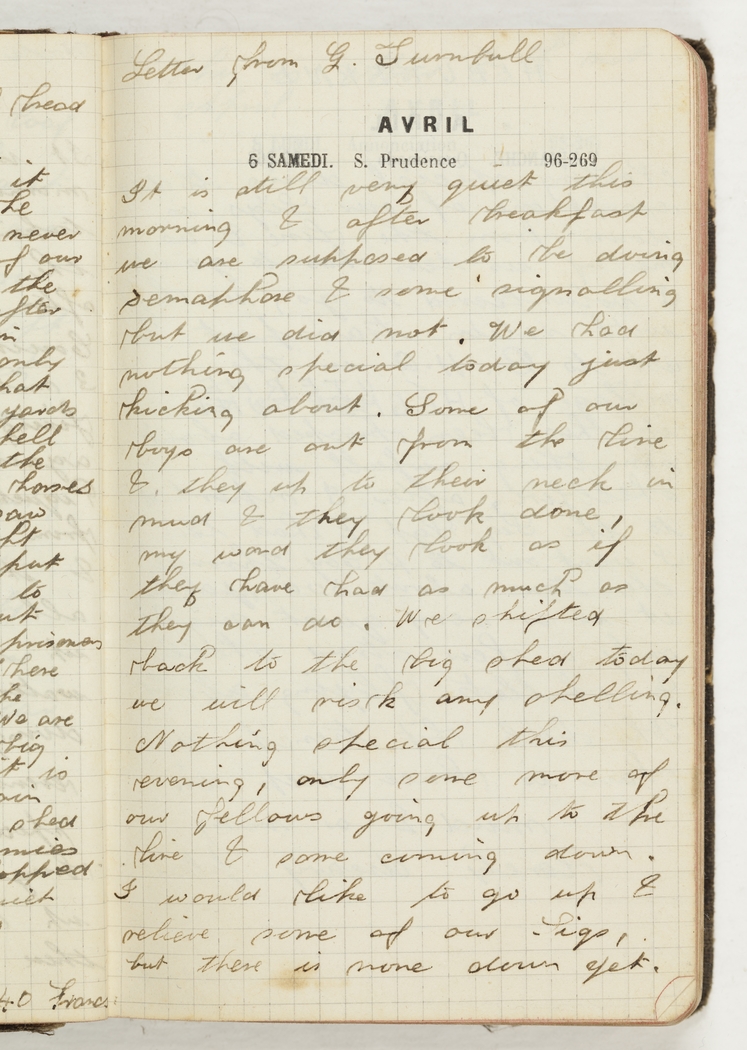 Letter from G. Turnbull
AVRIL
6 SAMEDI. S. Prudence - 96-269
It is still very quiet this
morning & after breakfast
we are supposed to be doing
semaphore & some signalling
but we did not. We had
nothing special today just
kicking about. Some of our
boys are out from the line
&. they up to their neck in
mud & they look done,
my word they look as if
they have had as much as
they can do. We shifted
back to the big shed today
we will risk any shelling.
Nothing special this
evening, only some more of
our fellows going up to the
line & some coming down.
I would like to go up &
relieve some of our Sigs,
but there is none down yet.
head
it
he
never
of our
the
after
in
only
hat
yards
hell
the
horses
saw
ft
put
to
ut
prisoners
here
he
We are
big
it is
ain
shed
mies
opped
uiet
40 Francs